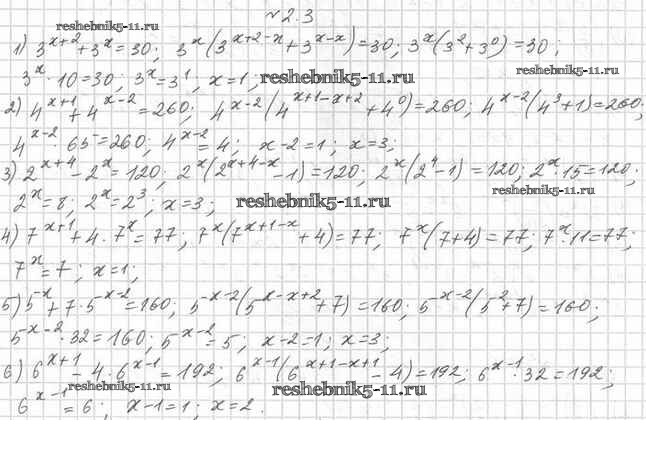 №2.3
reshebnik5-11.ru
1) 3^{x+2}+3^x=30; 3^x(3^{x+2-x}+3^{x-x})=30; 3^x(3^2+3^0)=30;
reshebnik5-11.ru
3^x·10=30; 3^x=3^1, x=1; reshebnik5-11.ru
2) 4^{x+1}+4^{x-2}=260; 4^{x-2}(4^{x+1-x+2}+4^0)=260; 4^{x-2}(4^3+1)=260;
4^{x-2}·65=260; 4^{x-2}=4; x-2=1; x=3;
3) 2^{x+4}-2^x=120; 2^x(2^{x+4-x}-1)=120; 2^x(2^4-1)=120; 2^x·15=120;
reshebnik5-11.ru
2^x=8; 2^x=2^3; x=3; reshebnik5-11.ru
4) 7^{x+1}+4·7^x=77; 7^x(7^{x+1-x}+4)=77; 7^x(7+4)=77; 7^x·11=77;
7^x=7; x=1;
5) 5^{-x}+7·5^{-x-2}=160; 5^{-x-2}(5^{-x-x+2}+7)=160; 5^{-x-2}(5^2+7)=160;
5^{-x-2}·32=160; 5^{-x-2}=5; x-2=1; x=3;
6) 6^{x+1}-4·6^{x-1}=192; 6^{x-1}(6^{x+1-x+1}-4)=192; 6^{x-1}·32=192;
reshebnik5-11.ru reshebnik5-11.ru
6^{x-1}=6; x-1=1; x=2.